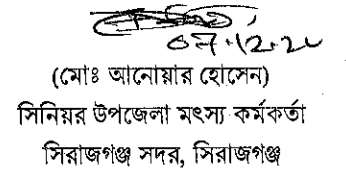 ০৭.১২.২০
(মোঃ আনোয়ার হোসেন)
সিনিয়র উপজেলা মৎস্য কর্মকর্তা
সিরাজগঞ্জ সদর, সিরাজগঞ্জ